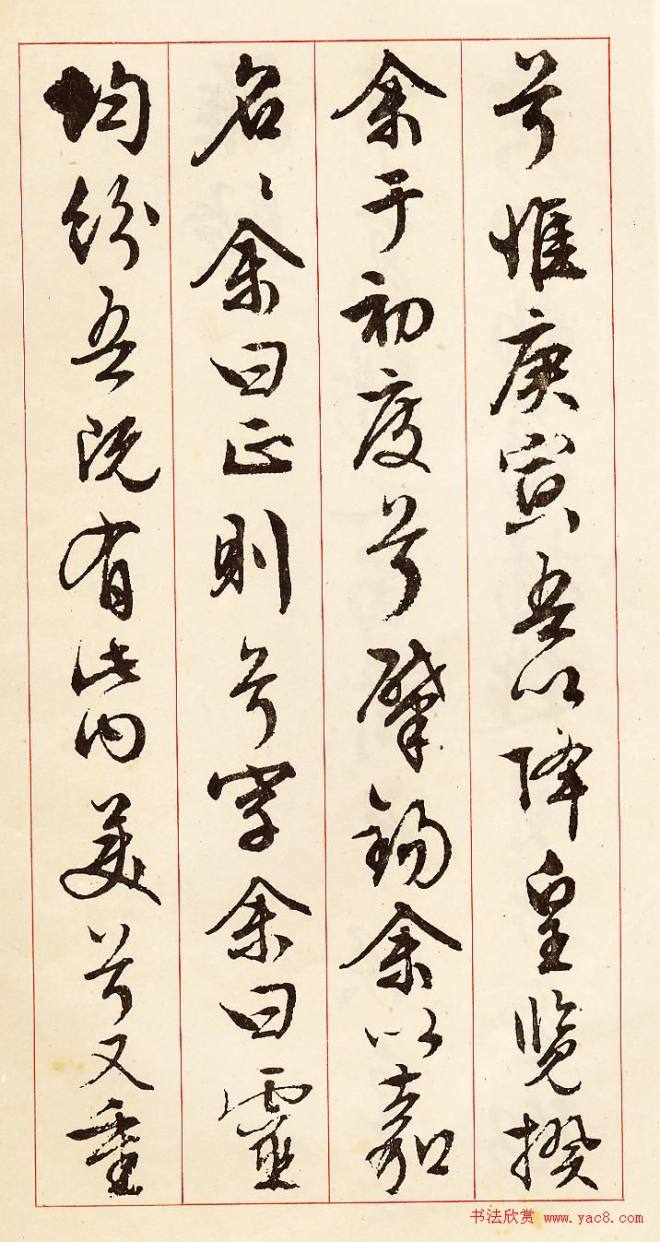 兮惟庚寅吾以降皇覽揆
余于初度兮肇錫余以嘉
名〻余曰正則兮字余曰靈
均紛吾既有此內美兮又重
书法欣赏 www.yac8.com